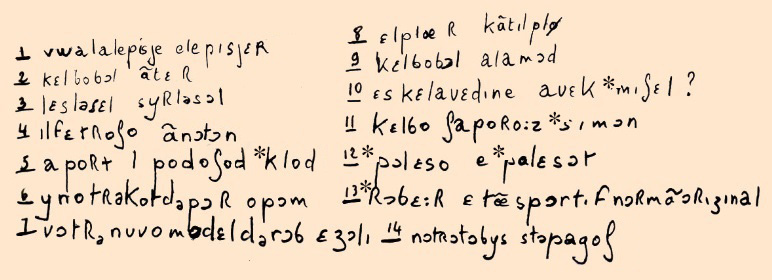 1 vwalalepisje elepisjɛR
2 kɛlbobɔl ãtɛR
3 lɛsləsɛl syRləsɔl
4 ilfɛtRoʃo ãnɔtɔn
5 apoRt l podoʃod *klod
6 ynotRəkotdəpɔR opɔm
7 vɔtRə nuvomodɛldəRɔb ɛʒɔli
8 ɛlplœR kãtilplø
9 kɛlbobɔl alamɔd
10 ɛskɛlavedine avɛk *miʃɛl ?
11 kɛlbo ʃapoRo:z *simɔn
12 *pɔlɛso e *palɛsɔt
13 *Rɔbɛ:R ɛtœ̃ spɔRtif nɔRmãɔRiʒinal
14 nɔtRɔtobys stɔpagoʃ